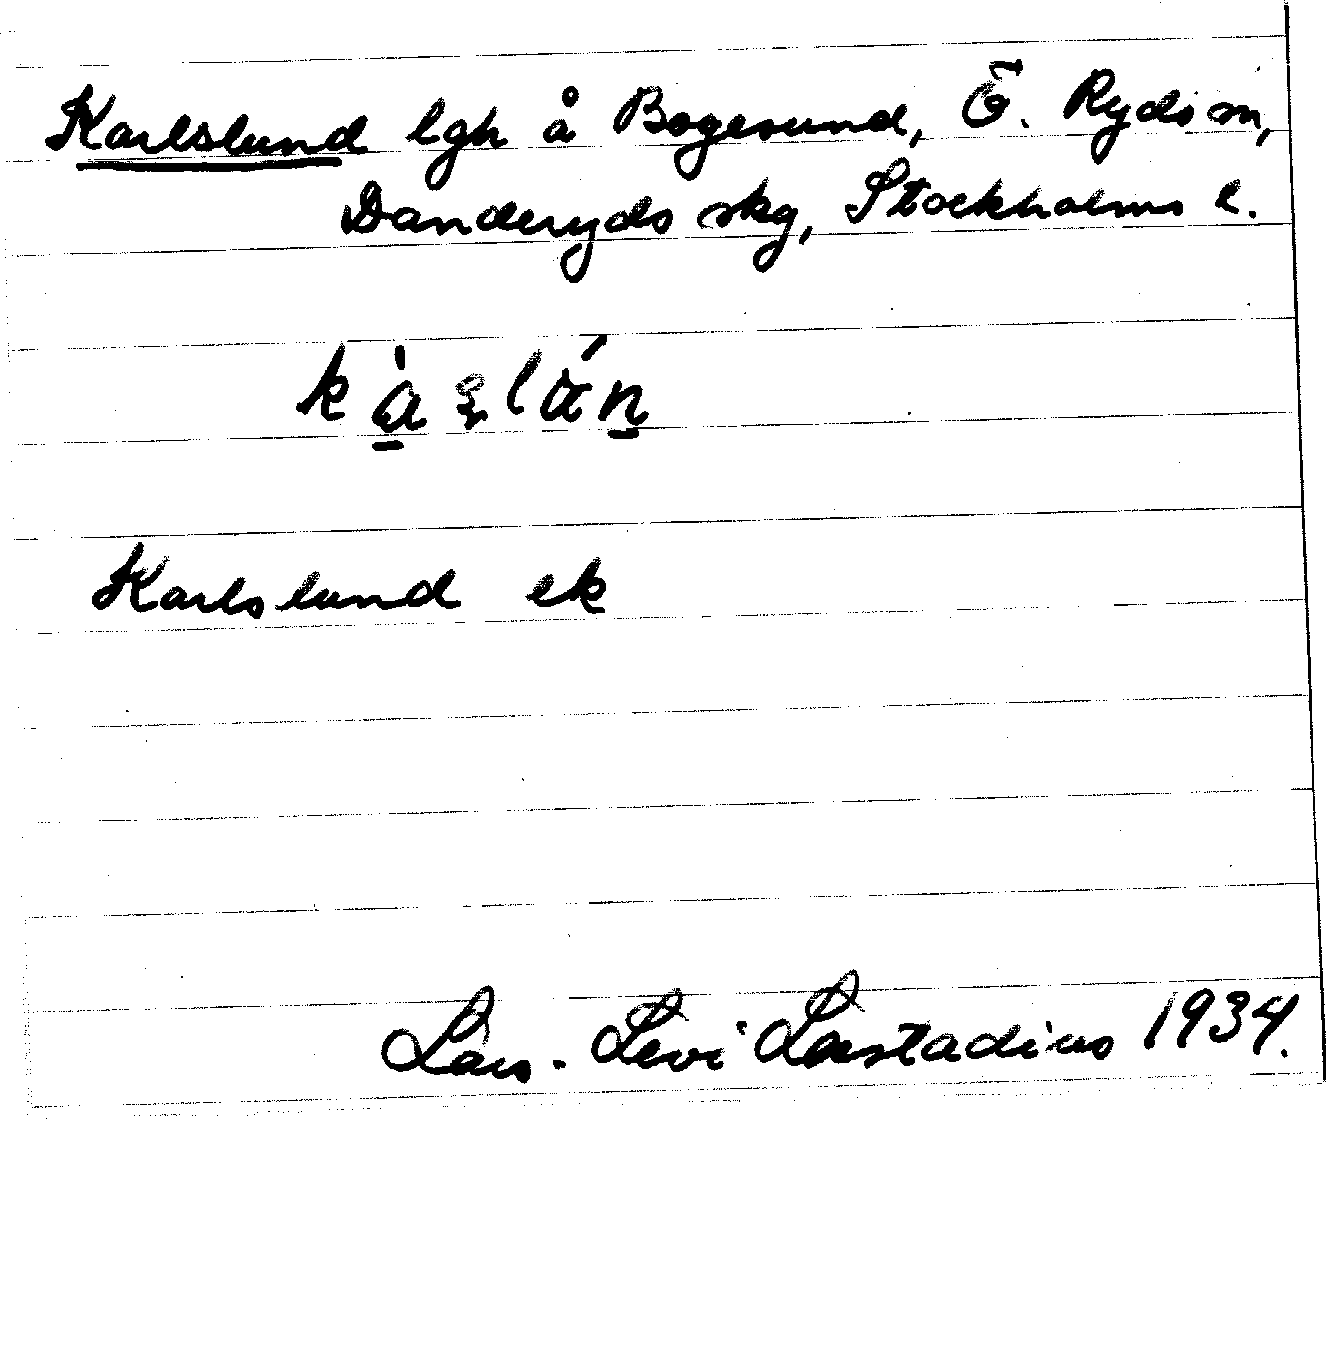 Karlslund lgh å Bogesund, Ö. Ryds sn,
Danderyds skg, Stockholms l.
Karlslund ek
Lars-Levi Læstadius 1934.